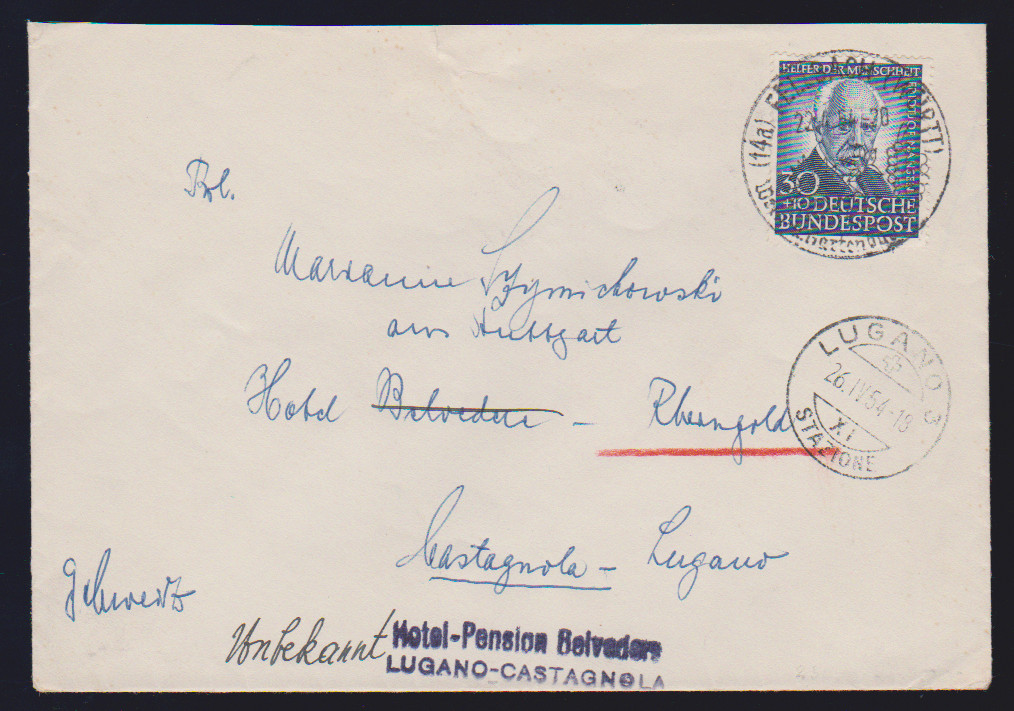 HELFER DER MENSCHHEIT
FRIDTJOF NANSEN
30
+10 DEUTSCHE
BUNDESPOST
(14a) FELLBACH (WÜRTT)
Frl.
Marianne Szymichowski
aus Stuttgart
Hotel Belvedere - Rheingold
LUGANO 3
26.IV.54-18
XI
STAZIONE
Castagnola - Lugano
Schweiz
Unbekannt Hotel-Pension Belvedere
LUGANO-CASTAGNOLA